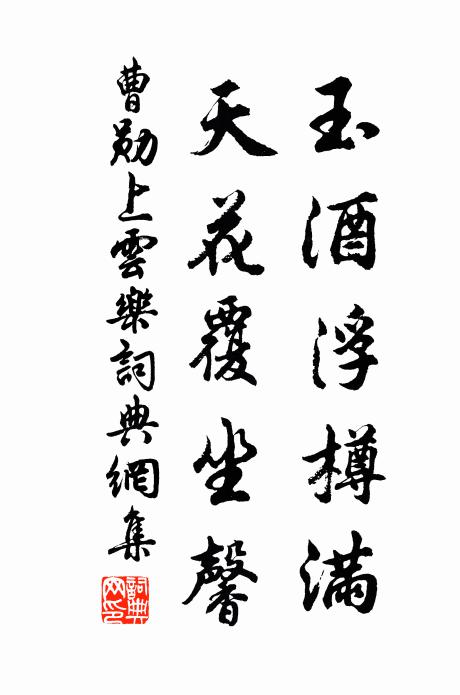 玉酒浮樽滿
天花覆坐馨
曹勛上雲樂詞典網集
詞典网印